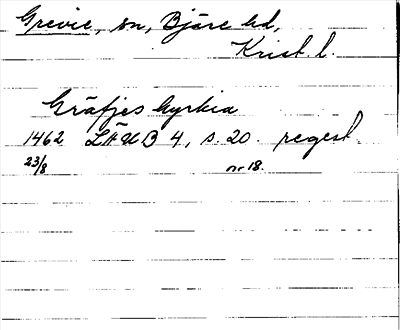 Grevie, sn, Bjäre hd,
Krist. l.
Gräfjes kyrkia
1462 LÄUB 4, s. 20. regest.
23/8 nr 18.